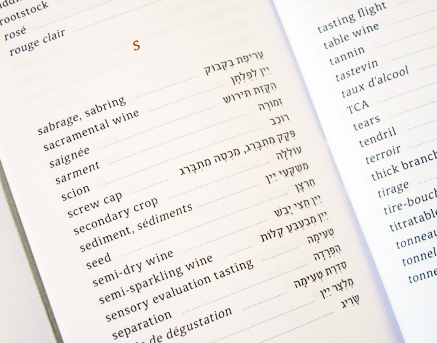 rootstock
rosé
rouge clair
S
sabrage, sabring עריפת בקבוק
sacramental wine יין לפלחן
saignée הקזת תירוש
sarment זמורה
scion רוכב
screw cap פקק מתברג, מכסה מתברג
secondary crop עוללה
sediment, sédiments משקעי יין
seed חרצן
semi-dry wine יין חצי יבש
semi-sparkling wine יין מבעבע קלות
sensory evaluation tasting טעימה
separation הפרדה
de dégustation סדרת טעימה
מלצר יין
שריג
tasting flight
table wine
tannin
tastevin
taux d'alcool
TCA
tears
tendril
terroir
thick branch
tirage